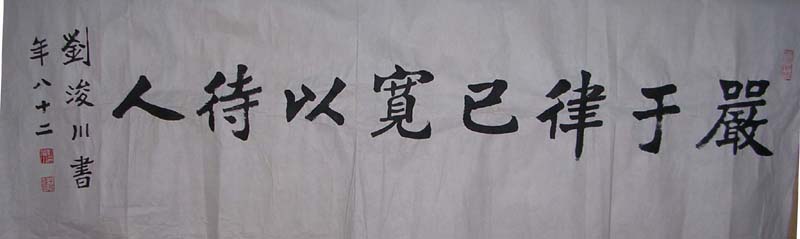 嚴于律己寬以待人
劉浚川書
年八十二